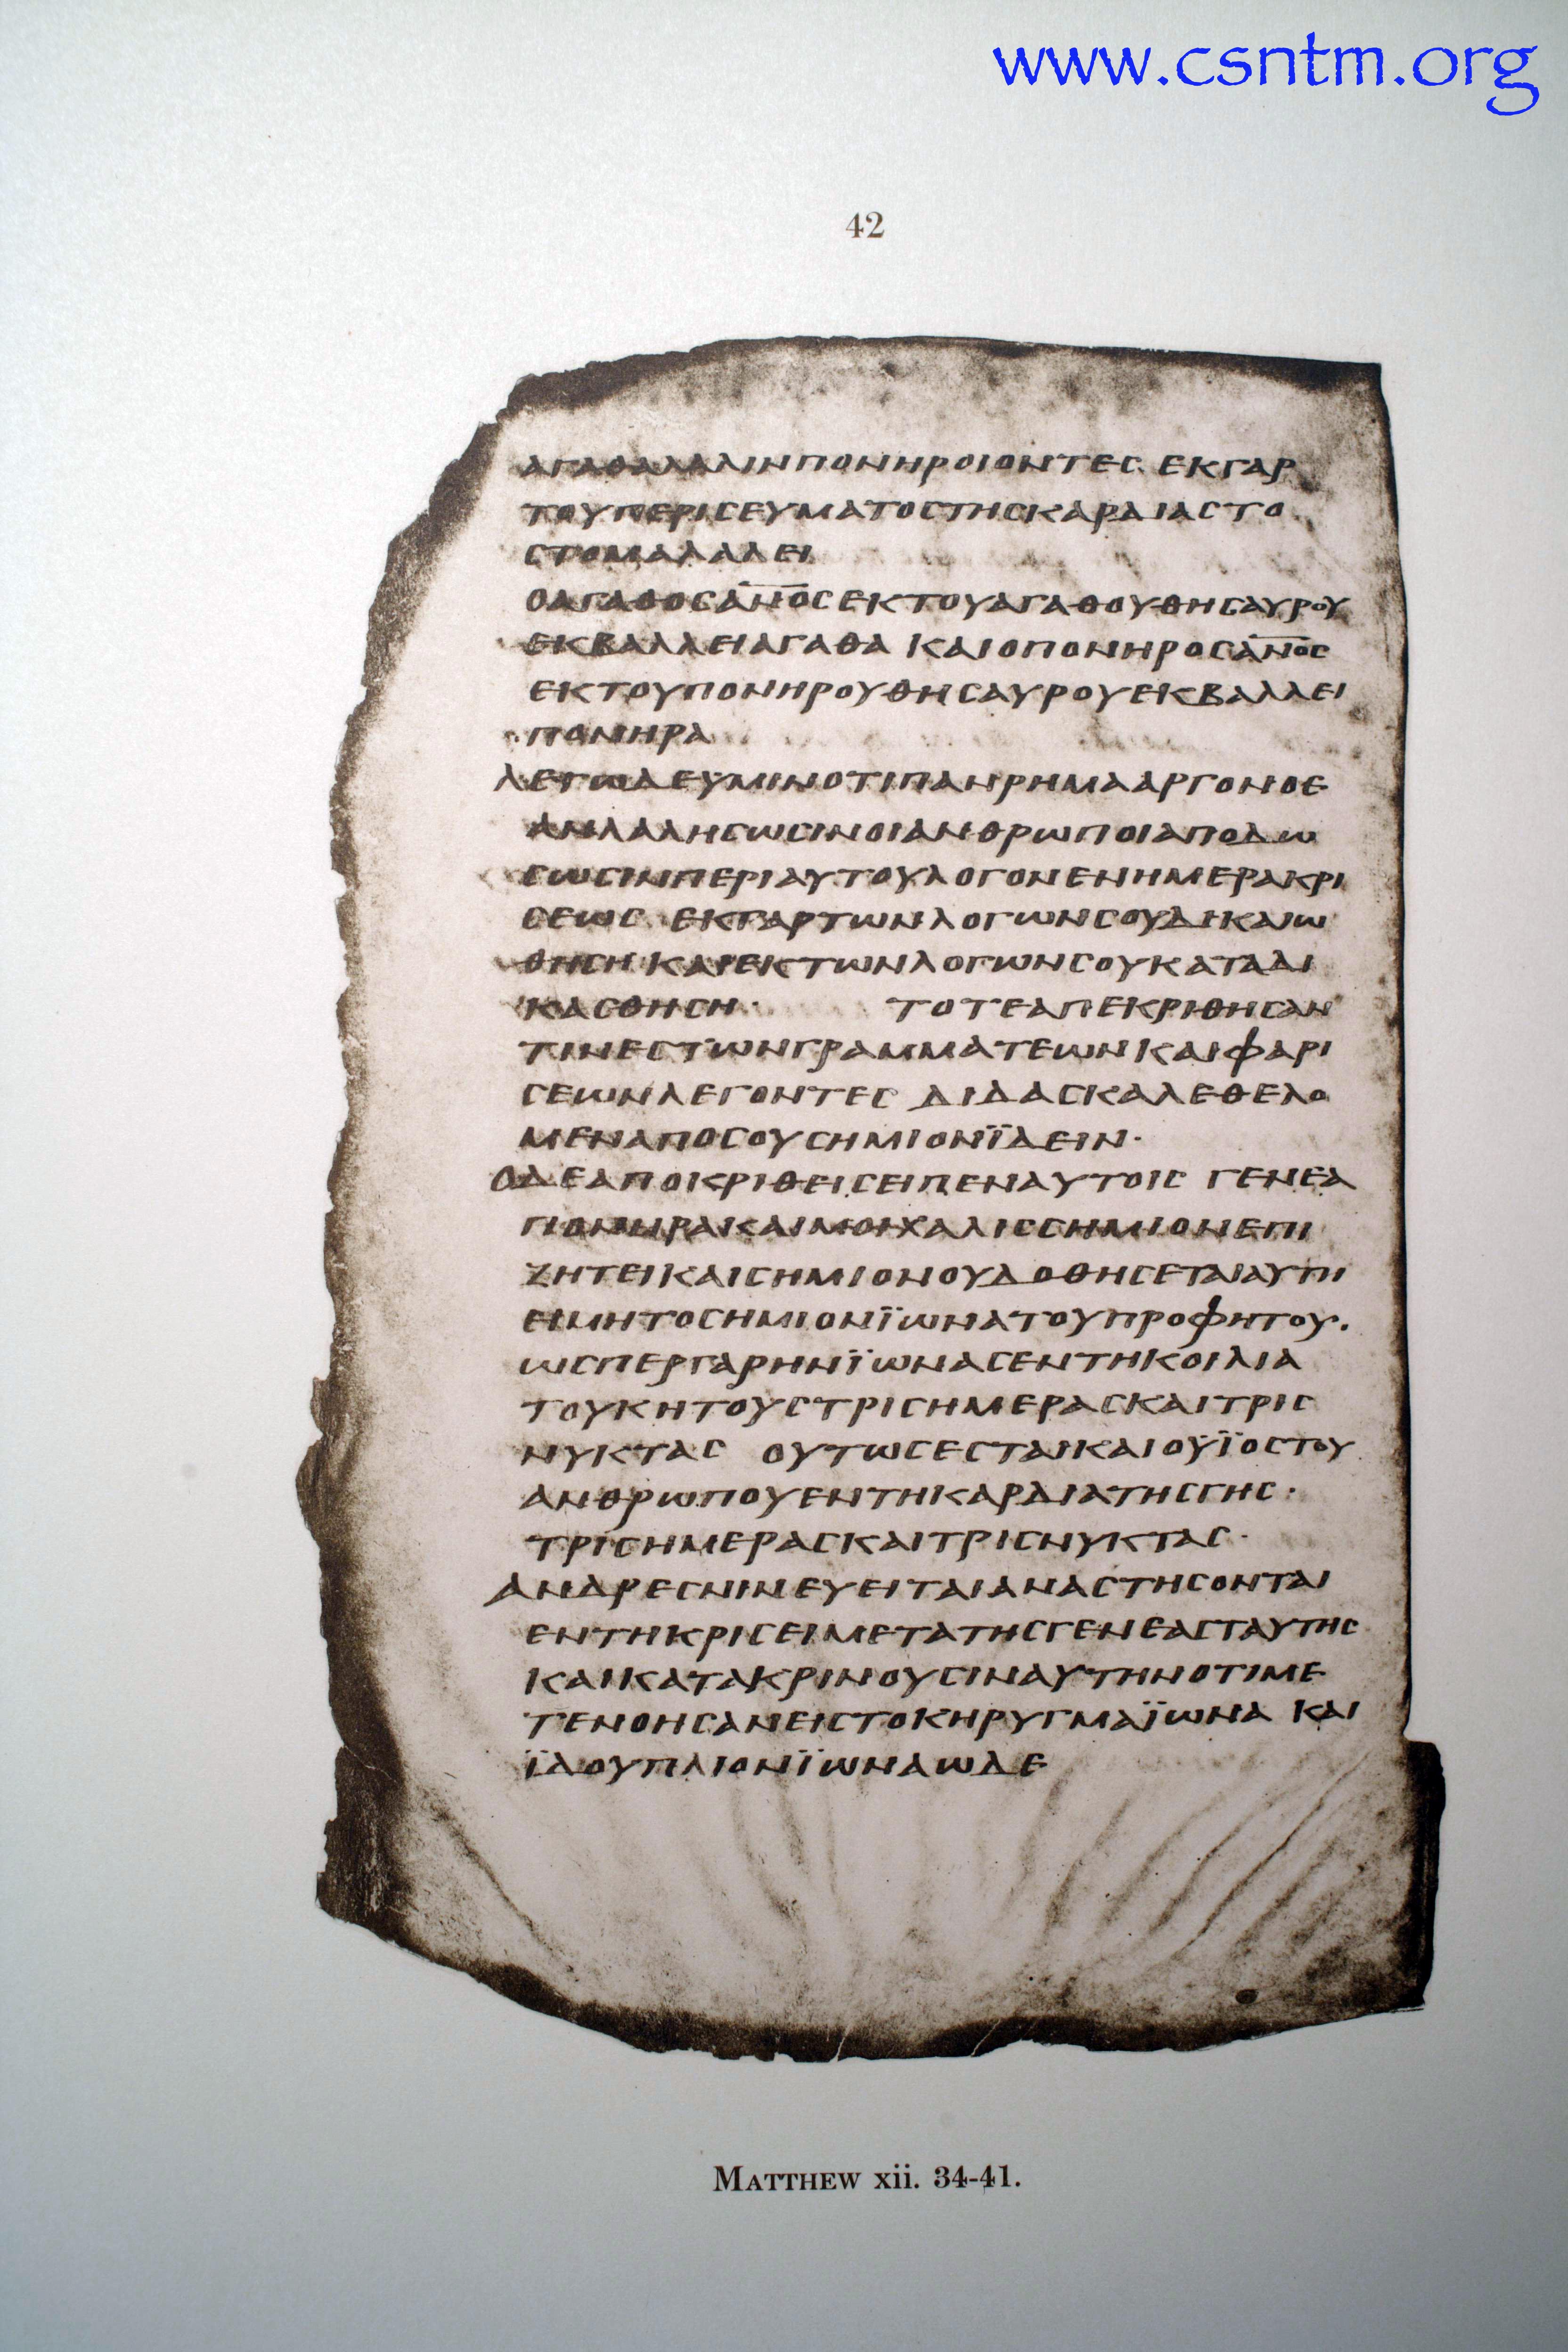 www.csntm.org
42
ΑΓΑΘΑΛΑΛΙΝΠΟΝΗΡΟΙΟΝΤΕΣ ΕΚΓΑΡ
ΤΟΥΠΕΡΙΣΕΥΜΑΤΟΣΤΗΣΚΑΡΔΙΑΣΤΟ
ΣΤΟΜΑΛΑΛΕΙ
ΟΑΓΑΘΟΣΑ̅Ν̅Ο̅Σ̅ΕΚΤΟΥΑΓΑΘΟΥΘΗΣΑΥΡΟΥ
ΕΚΒΑΛΛΕΙΑΓΑΘΑ ΚΑΙΟΠΟΝΗΡΟΣΑ̅Ν̅Ο̅Σ̅
ΕΚΤΟΥΠΟΝΗΡΟΥΘΗΣΑΥΡΟΥΕΚΒΑΛΛΕΙ
ΠΟΝΗΡΑ
ΛΕΓΩΔΕΥΜΙΝΟΤΙΠΑΝΡΗΜΑΑΡΓΟΝΟΕ
ΑΝΛΑΛΗΣΩΣΙΝΟΙΑΝΘΡΩΠΟΙΑΠΟΔΩ
ΣΩΣΙΝΠΕΡΙΑΥΤΟΥΛΟΓΟΝΕΝΗΜΕΡΑΚΡΙ
ΣΕΩΣ ΕΚΓΑΡΤΩΝΛΟΓΩΝΣΟΥΔΙΚΑΙΩ
ΘΗΣΗ ΚΑΙΕΚΤΩΝΛΟΓΩΝΣΟΥΚΑΤΑΔΙ
ΚΑΣΘΗΣΗ· ΤΟΤΕΑΠΕΚΡΙΘΗΣΑΝ
ΤΙΝΕΣΤΩΝΓΡΑΜΜΑΤΕΩΝΚΑΙΦΑΡΙ
ΣΕΩΝΛΕΓΟΝΤΕΣ ΔΙΔΑΣΚΑΛΕΘΕΛΟ
ΜΕΝΑΠΟΣΟΥΣΗΜΙΟΝΪΔΕΙΝ·
ΟΔΕΑΠΟΚΡΙΘΕΙΣΕΙΠΕΝΑΥΤΟΙΣ ΓΕΝΕΑ
ΠΟΝΗΡΑΚΑΙΜΟΙΧΑΛΙΣΣΗΜΙΟΝΕΠΙ
ΖΗΤΕΙΚΑΙΣΗΜΙΟΝΟΥΔΟΘΗΣΕΤΑΙΑΥΤΗ
ΕΙΜΗΤΟΣΗΜΙΟΝΪΩΝΑΤΟΥΠΡΟΦΗΤΟΥ.
ΩΣΠΕΡΓΑΡΗΝΪΩΝΑΣΕΝΤΗΚΟΙΛΙΑ
ΤΟΥΚΗΤΟΥΣΤΡΙΣΗΜΕΡΑΣΚΑΙΤΡΙΣ
ΝΥΚΤΑΣ ΟΥΤΩΣΕΣΤΑΙΚΑΙΟΫΪΟΣΤΟΥ
ΑΝΘΡΩΠΟΥΕΝΤΗΚΑΡΔΙΑΤΗΣΓΗΣ·
ΤΡΙΣΗΜΕΡΑΣΚΑΙΤΡΙΣΝΥΚΤΑΣ·
ΑΝΔΡΕΣΝΙΝΕΥΕΙΤΑΙΑΝΑΣΤΗΣΟΝΤΑΙ
ΕΝΤΗΚΡΙΣΕΙΜΕΤΑΤΗΣΓΕΝΕΑΣΤΑΥΤΗΣ
ΚΑΙΚΑΤΑΚΡΙΝΟΥΣΙΝΑΥΤΗΝΟΤΙΜΕ
ΤΕΝΟΗΣΑΝΕΙΣΤΟΚΗΡΥΓΜΑΪΩΝΑ ΚΑΙ
ΪΔΟΥΠΛΙΟΝΪΩΝΑΩΔΕ
MATTHEW xii. 34-41.